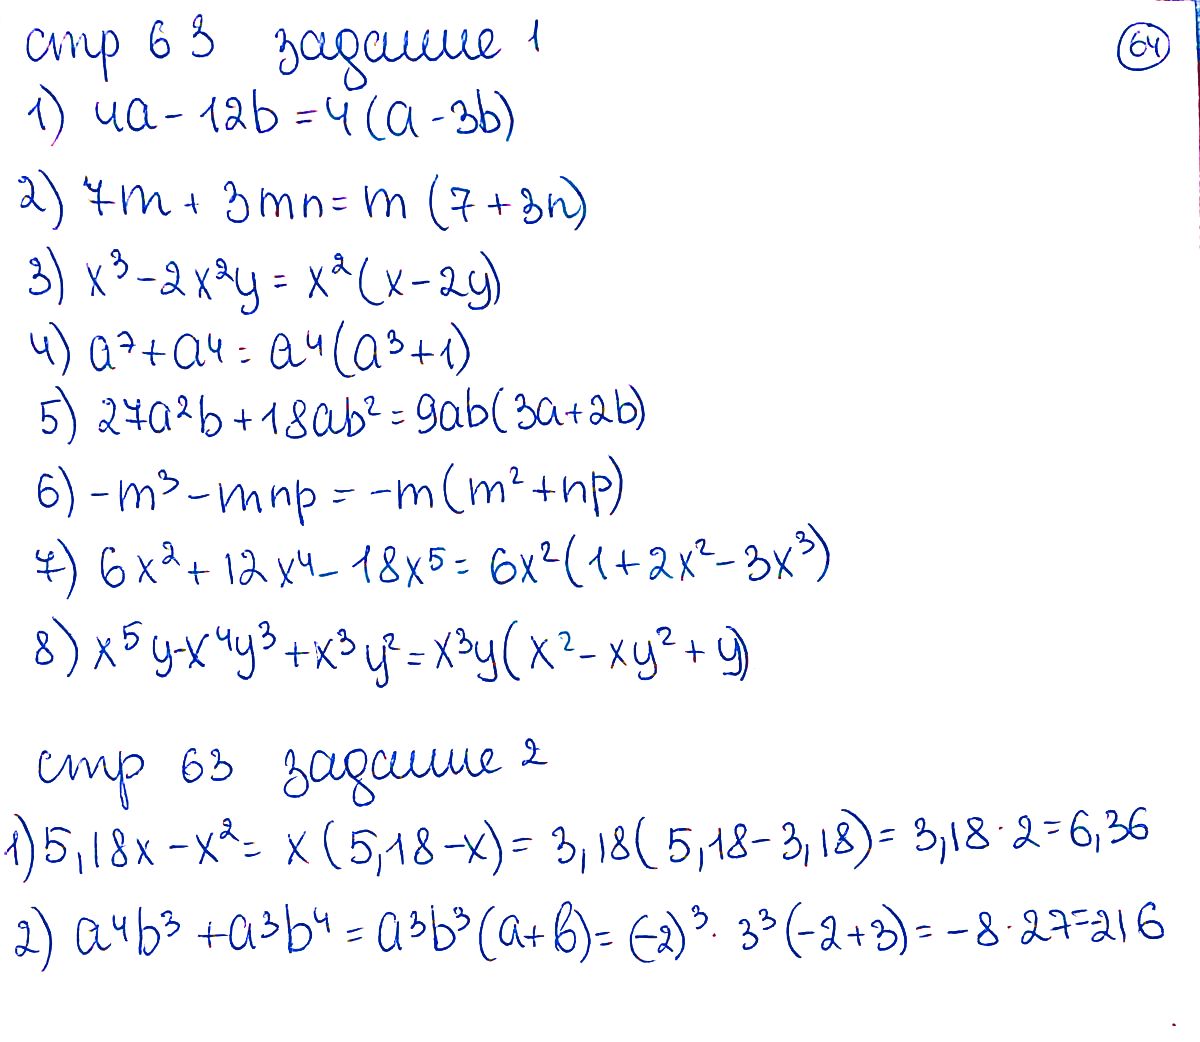 стр 63 задание 1
64
1) 4a - 12b = 4(a - 3b)
2) 7m + 3mn = m (7 + 3n)
3) x³ - 2x²y = x²(x - 2y)
4) a⁷ + a⁴ = a⁴(a³ + 1)
5) 27a²b + 18ab² = 9ab(3a + 2b)
6) -m³ - mnp = -m(m² + np)
7) 6x² + 12x⁴ - 18x⁵ = 6x²(1 + 2x² - 3x³)
8) x⁵y - x⁴y³ + x³y² = x³y(x² - xy² + y)
стр 63 задание 2
1) 5,18x - x² = x(5,18 - x) = 3,18(5,18 - 3,18) = 3,18 · 2 = 6,36
2) a⁴b³ + a³b⁴ = a³b³(a + b) = (-2)³ · 3³(-2 + 3) = -8 · 27 = -216